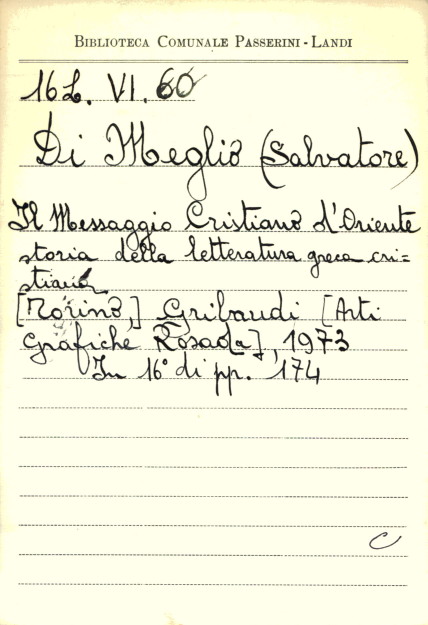 BIBLIOTECA COMUNALE PASSERINI - LANDI
16 L. VI. 60
Di Meglio (Salvatore)
Il Messaggio Cristiano d'Oriente
storia della letteratura greca cri=
stiana
[Torino,] Gribaudi [Arti
Grafiche Rosada], 1973
In 16° di pp. 174
C